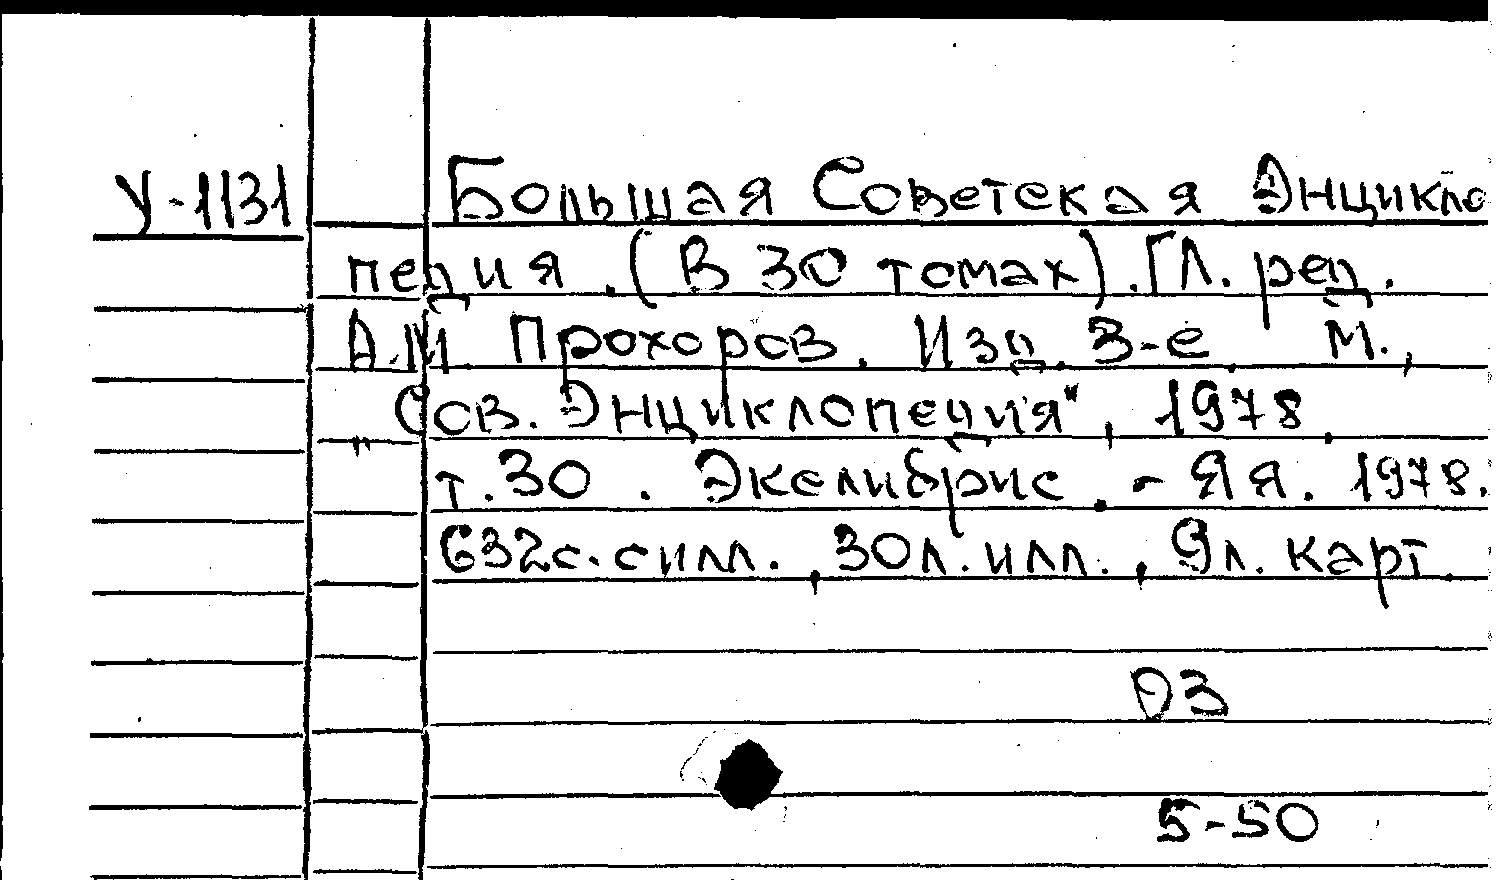 У-1131 Большая Советская Энцикло
педия. (В 30 томах). Гл. ред.
А.М. Прохоров. Изд. 3-е. М.,
„Сов. Энциклопедия", 1978.
т. 30. Экслибрис. - Яя. 1978.
632с. с илл., 30л. илл., 9л. карт.
03
5-50